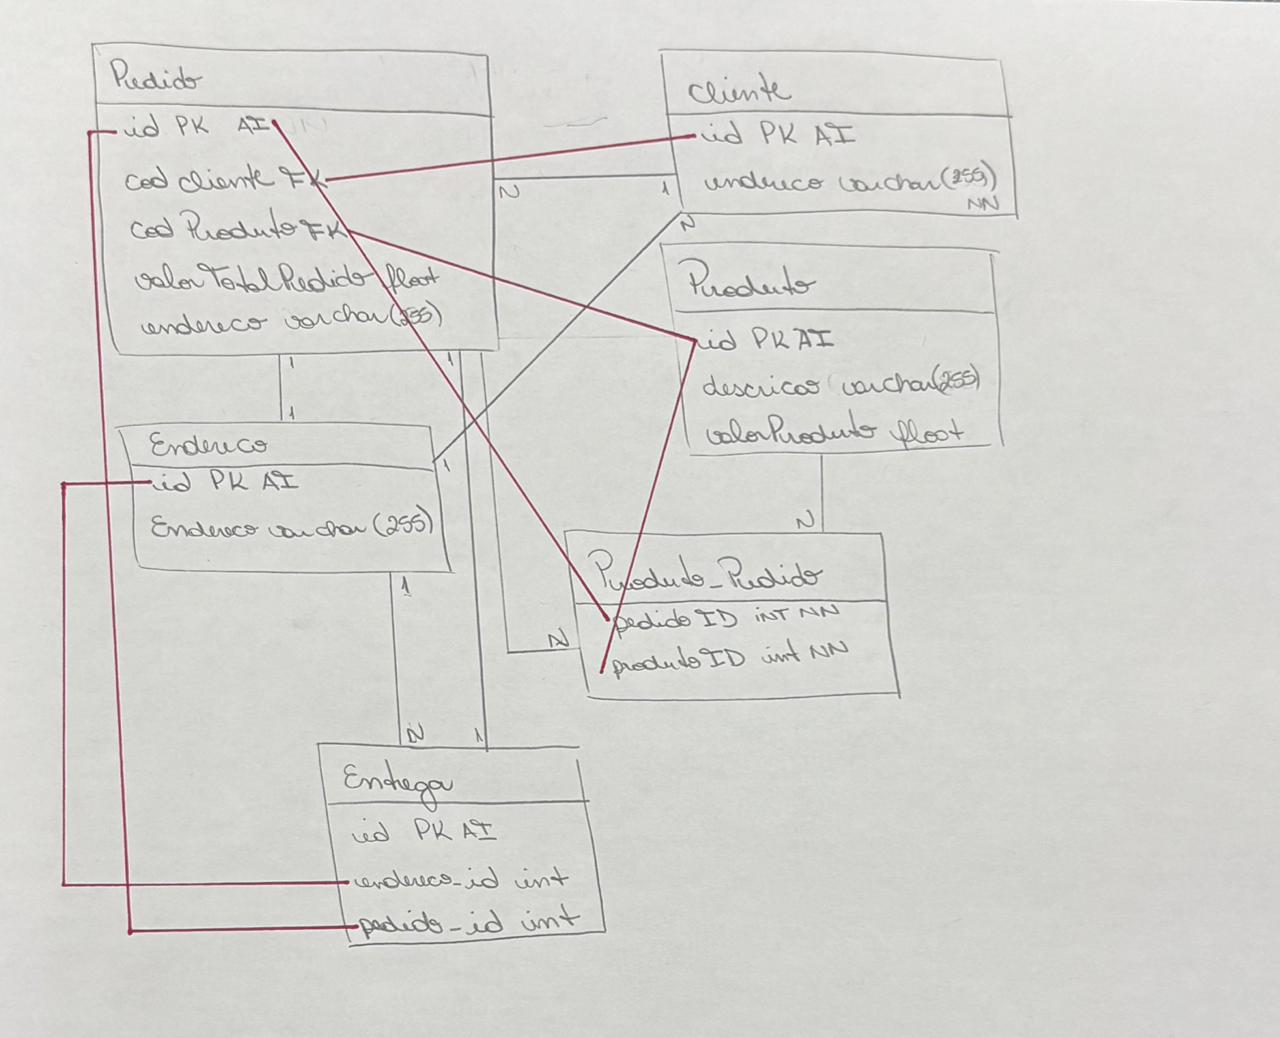 Pedido
id PK AI
cod cliente FK
cod Produto FK
valorTotalPedido float
endereco varchar(255)
N
1
1
1
1
cliente
id PK AI
endereco varchar(255)
NN
N
Produto
id PK AI
descricao varchar(255)
valorProduto float
N
Endereco
1
id PK AI
Endereco varchar(255)
1
Produto_Pedido
pedidoID INT NN
produtoID int NN
N
N
1
Entrega
id PK AI
endereco_id int
pedido_id int